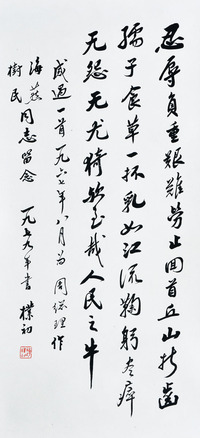 忍辱負重艱難劳止回首丘山折齒
孺子食草一抔乳如江流鞠躬尽瘁
无怨无尤猗欤至哉人民之牛
感遇一首一九六七年八月为周总理作
海
樹民
同志留念
一九七九年書 樸初